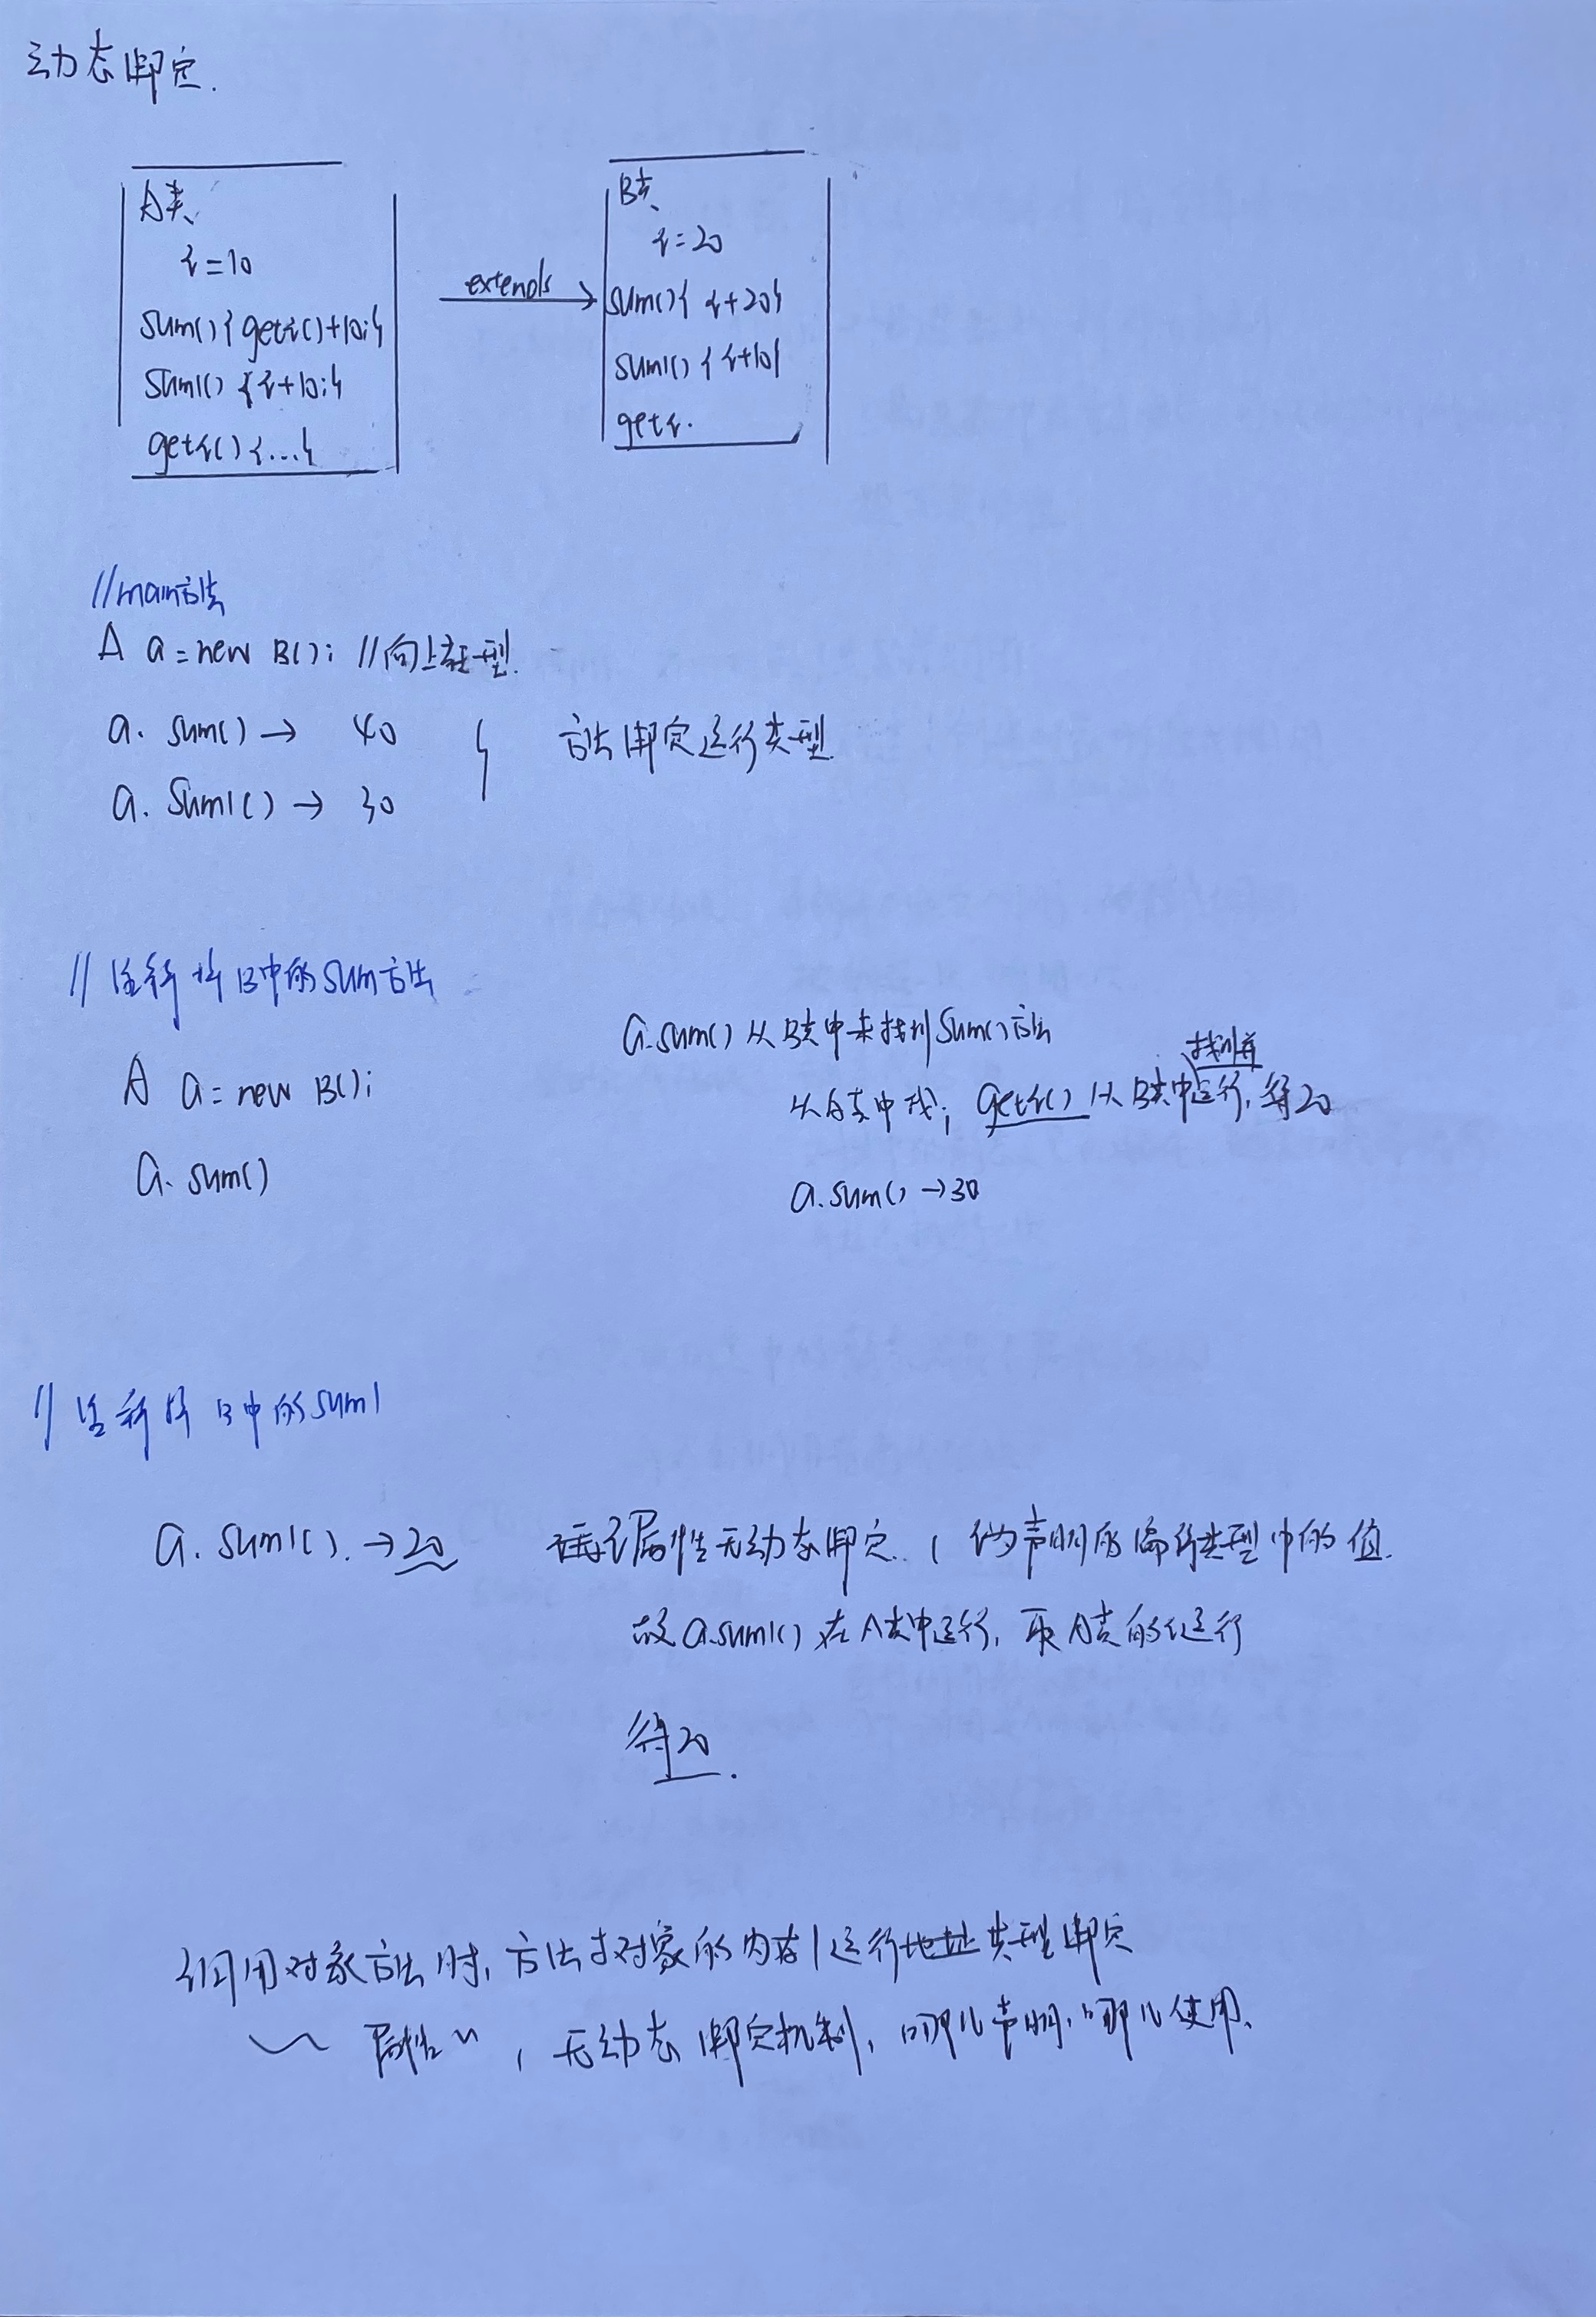 动态绑定.
A类
i=10
sum(){geti()+10;}
sum1(){i+10;}
geti(){...}
extends
B类
i=20
sum(){i+20}
sum1(){i+10}
geti.
//main方法
A a=new B(); //向上转型.
a.sum()→ 40
a.sum1()→ 30
方法绑定运行类型.
//注释掉B中的sum方法
A a=new B();
a.sum()
a.sum()从B类中未找到sum()方法
找到并
从A类中找; geti()从B类中运行,得20
a.sum()→30
//注释掉B中的sum1
a.sum1().→20
属性无动态绑定. 声明的 类型中的值.
故a.sum1()在A类中运行,取A类的i运行
得20.
调用对象方法时,方法与对象的内存/运行地址类型绑定
属性〃,无动态绑定机制,哪儿声明,哪儿使用.